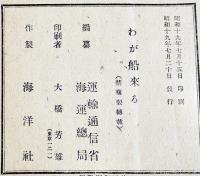 昭和十九年七月十五日 印刷
昭和十九年七月二十日 発行
わが船来る
(禁複製轉載)
編纂 運輸通信省
海運總局
印刷者 大橋芳雄
(東京一二)
作製 海洋社